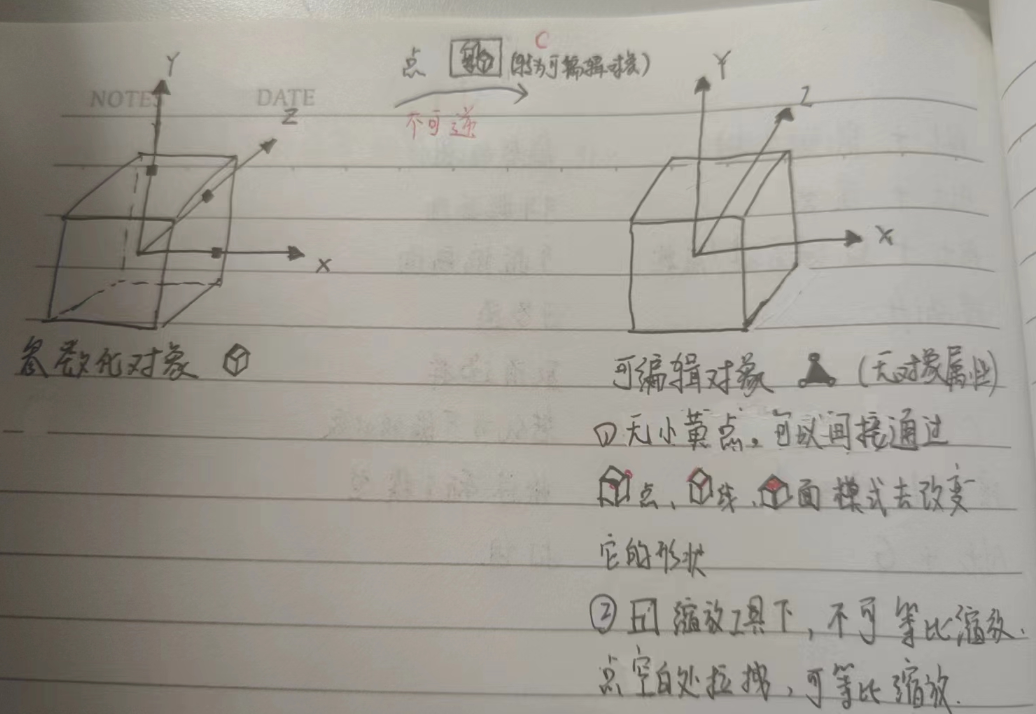 NOTES DATE
点 (转为可编辑对象)
C
不可逆
Y
Z
X
Y
Z
X
参数化对象
可编辑对象 (无对象属性)
①无小黄点。可以间接通过
点、线、面模式去改变
它的形状
② 缩放工具下,不可等比缩放.
点空白处拉拽,可等比缩放.